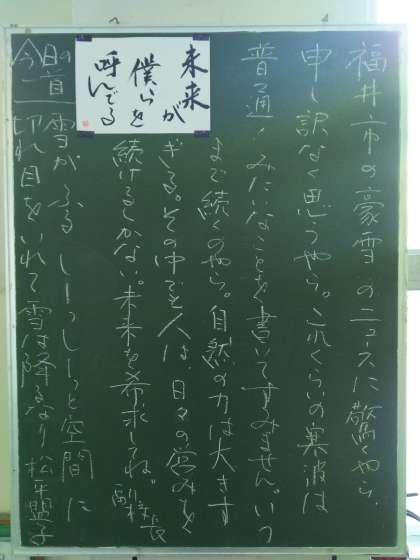 福井市の豪雪のニュースに驚くやら、
申し訳なく思うやら。これくらいの寒波は
普通!みたいなことを書いてすみません。いつ
まで続くのやら。自然の力は大きす
ぎる。その中でも人は、日々の営みを
続けるしかない。未来を希求してね。
副校長
未来
が
僕らを
呼んでる
今日の一首
雪がふる しーっしーっと空間に
切れ目をいれて雪は降るなり 松平盟子